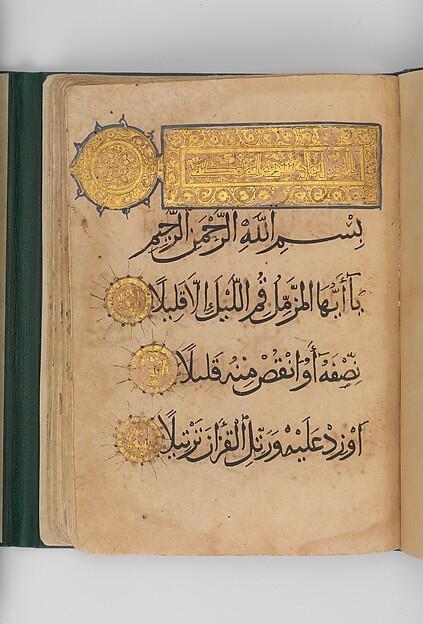 بِسْمِ اللهِ الرَّحْمٰنِ الرَّحِيمِ
يٰأَيُّهَا المُزَّمِّلُ قُمِ اللَّيْلَ إِلَّا قَلِيلًا
نِصْفَهُ أَوِ انْقُصْ مِنْهُ قَلِيلًا
أَوْ زِدْ عَلَيْهِ وَرَتِّلِ القُرْآنَ تَرْتِيلًا